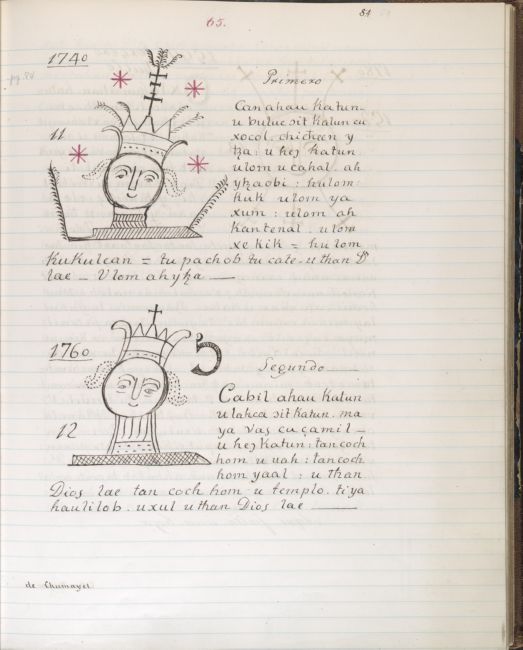 84
65.
1740
Primero
11
Canahau Katun
u buluc sit katun cu
xocol. chicheen y
tza: u hez katun.
ulom u cahal ah
ytzaobi: hulom
kuk ulom ya
xum: ulom ah
kantenal. ulom
xe kik = hulom
Kukulcan = tu pachob tu cate. u than Ds
lae - Ulom ahytza
1760
Segundo
12
Cabil ahau Katun
u lahca sit Katun. ma
ya vas cuçamil
u hez Katun: tancoch
hom u uah: tancoch
hom yaal: u than
Dios lae tan coch hom u templo. tiya
haulilob. uxul u than Dios lae
de Chumayel